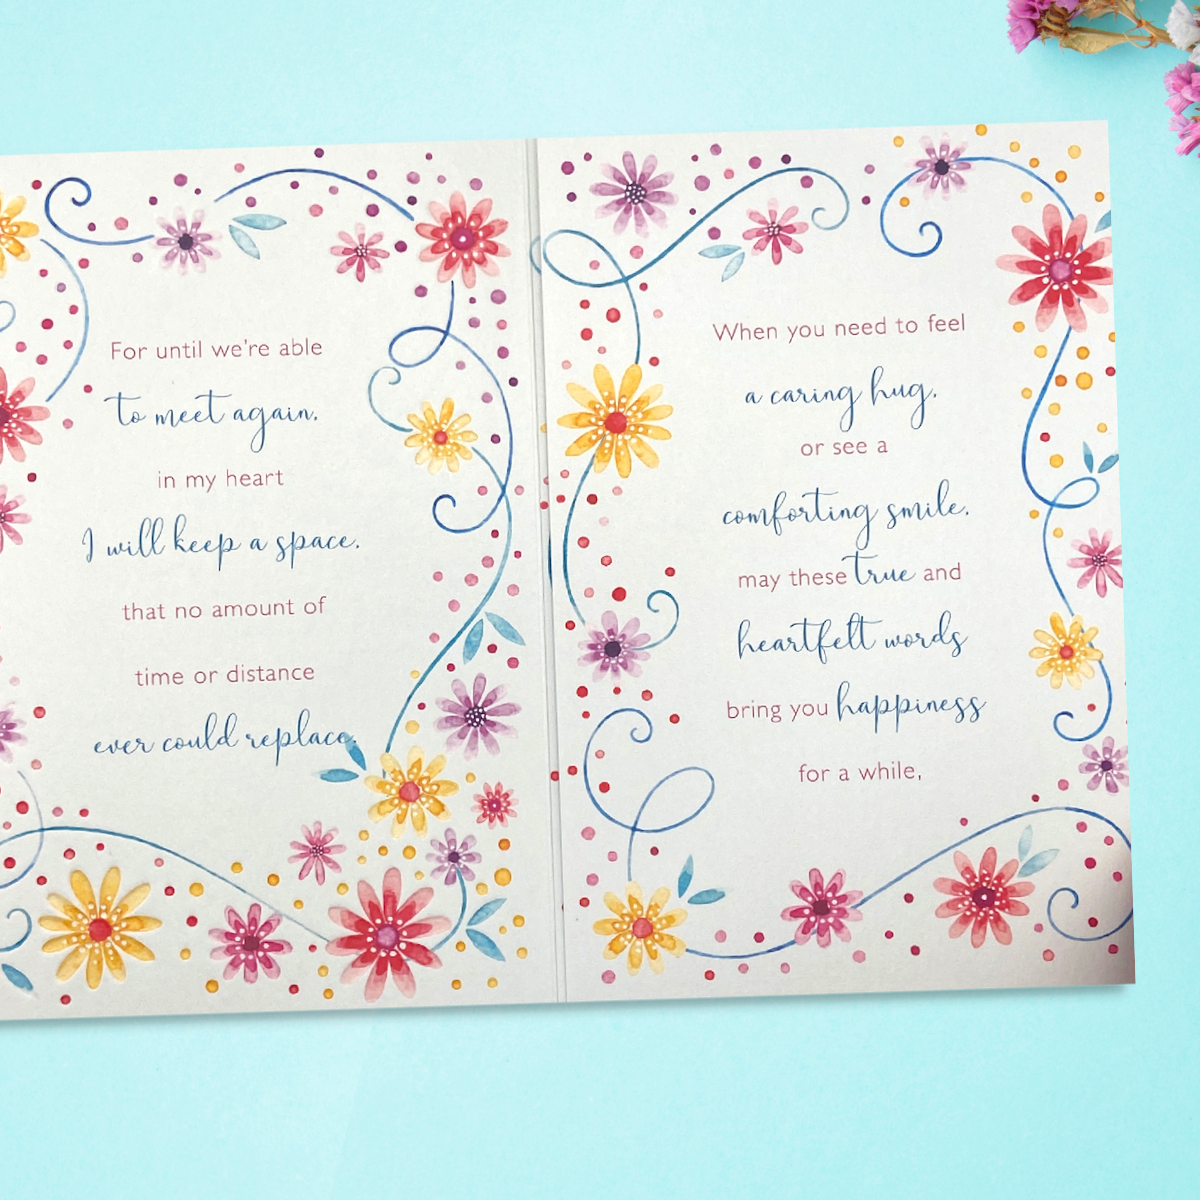 For until we're able
to meet again,
in my heart
I will keep a space,
that no amount of
time or distance
ever could replace.
When you need to feel
a caring hug,
or see a
comforting smile,
may these true and
heartfelt words
bring you happiness
for a while,